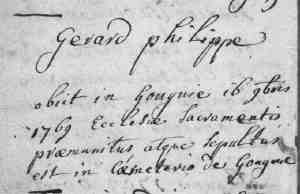 Gerard philippe
obiit in Gougnie 16 9bris
1769 Ecclesiæ Sacramentis
præmunitus atque sepultus
est in Cœmeterio de Gougnie